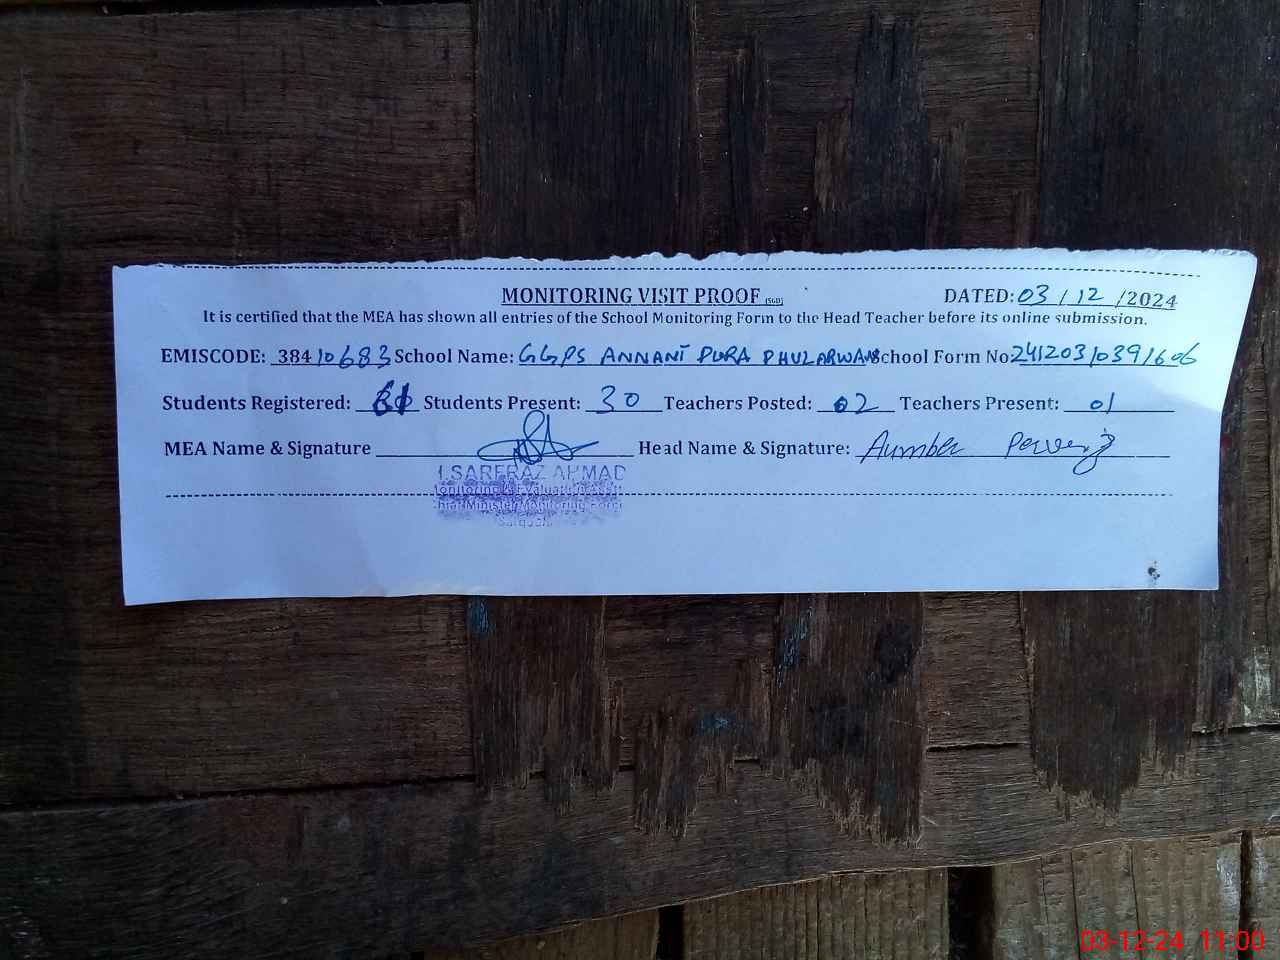 MONITORING VISIT PROOF (SGD) DATED: 03 / 12 /2024
It is certified that the MEA has shown all entries of the School Monitoring Form to the Head Teacher before its online submission.
EMISCODE: 38410683 School Name: GGPS ANNANT PURA PHULARWAN School Form No 24120310391606
Students Registered: Students Present: 30 Teachers Posted: 02 Teachers Present: 01
MEA Name & Signature Head Name & Signature: Aumber Perveiz
M.SARFRAZ AHMAD
Monitoring & Evaluation Asstt
Chief Minister Monitoring Force
Sargodha
03-12-24 11:00